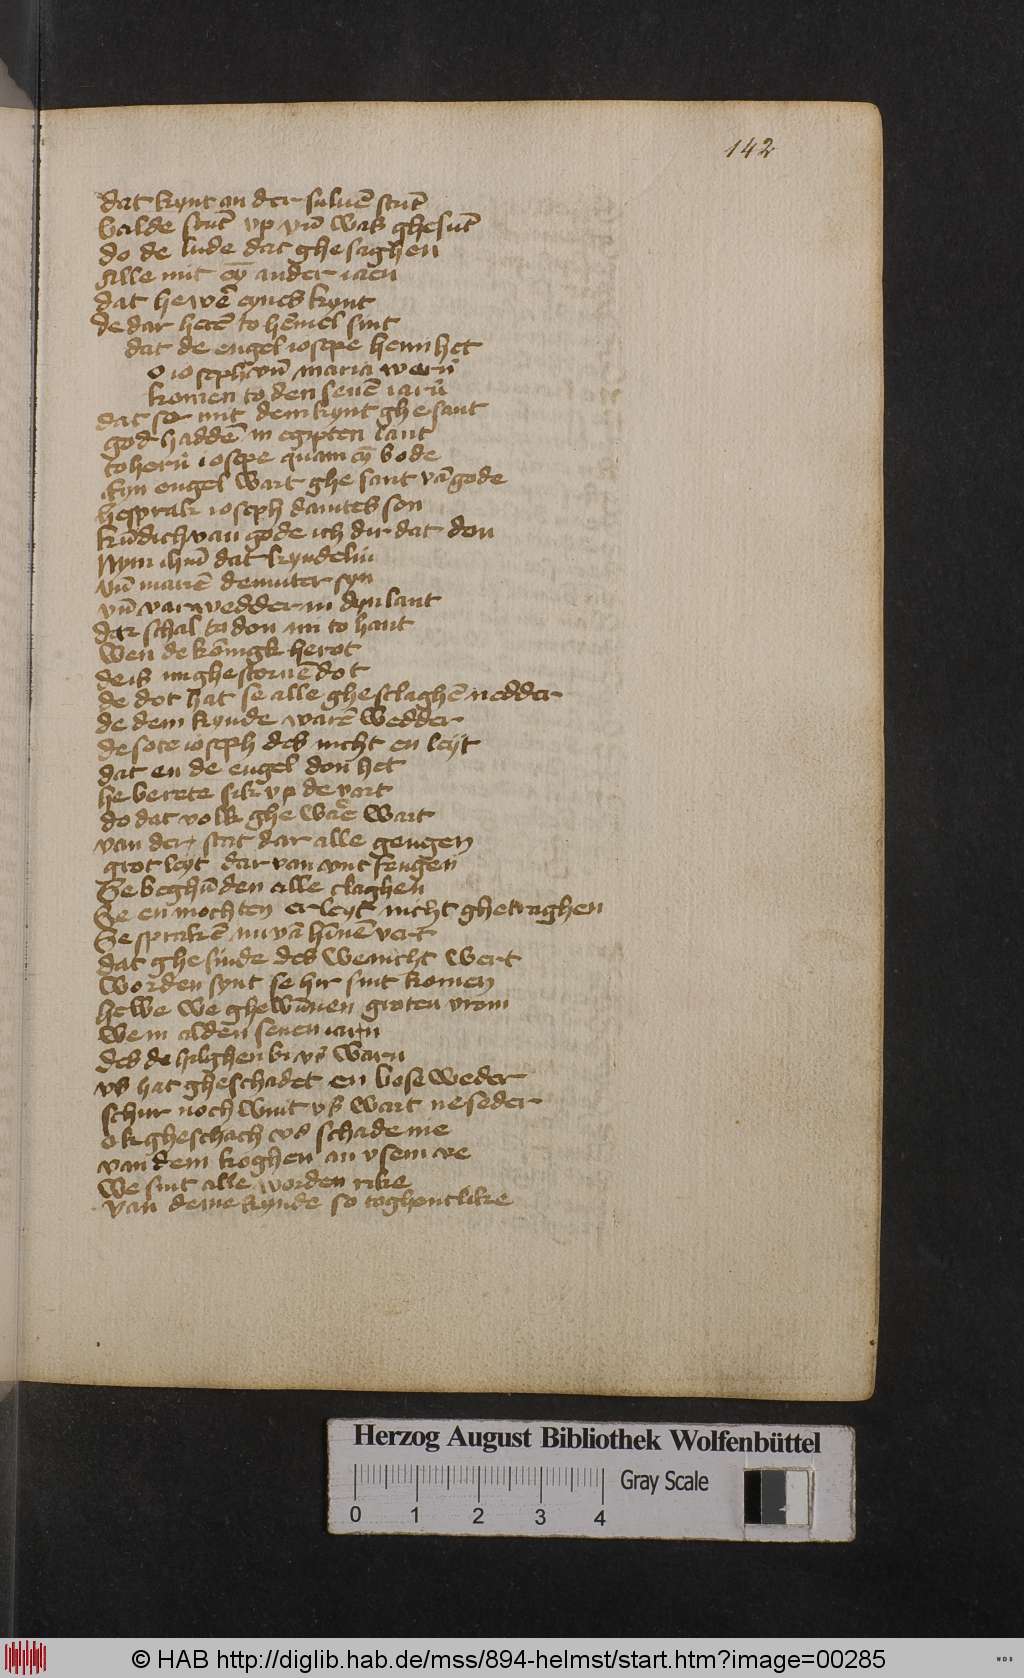 142
dat kynt an der suluē stūt
balde stūt vp vn̄ was ghesūt
do de lude dat ghesaghen
Alle mit eȳ ander iaen
dat he wer̄ eynes kynt
de dar hetē to hēmel sint
dat de engel iosepe henn het
o ioseph vn̄ maria wern̄
komen to den seuē iarn̄
dat se mit dem kynt ghesant
god haddē in egipten lant
to hern̄ iosepe quam eȳ bode
Eyn engel wart ghe sant vā gode
he sprak ioseph dauites son
kūdich van gode ich dir dat don
Nym ihm̄ dat kyndelin
vn̄ mariē de muter syn
vn̄ var wedder in dyn lant
dar schal tu don mi to hant
wen de konigk herot
de is nu ghestoruē dot
de dot hat se alle gheslaghē nedder
de dem kynde warē wedder
de sote ioseph des nicht en leyt
dat en de engel don het
he berete sik vp de vart
do dat volk ghe ware wart
van der stat dar alle gengen
grot leyt dar van vntfengen
Se beghūden alle claghen
Se en mochten er leyt nicht ghetraghen
Se sprakē nu vā hīnē vert
dat ghesinde des we nicht wert
worden synt se hir sint komen
hewe we ghewūnen groten vrom
we in alden seuen iarn
des de hilghen bi vs warn
vs hat gheschadet en bose weder
schur noch wint vs wart ne seder
ok gheschach vs schade me
van dem koghen an vsem ve
we sint alle worden rike
van deme kynde so toghentlike
Herzog August Bibliothek Wolfenbüttel
Gray Scale
0 1 2 3 4
© HAB http://diglib.hab.de/mss/894-helmst/start.htm?image=00285